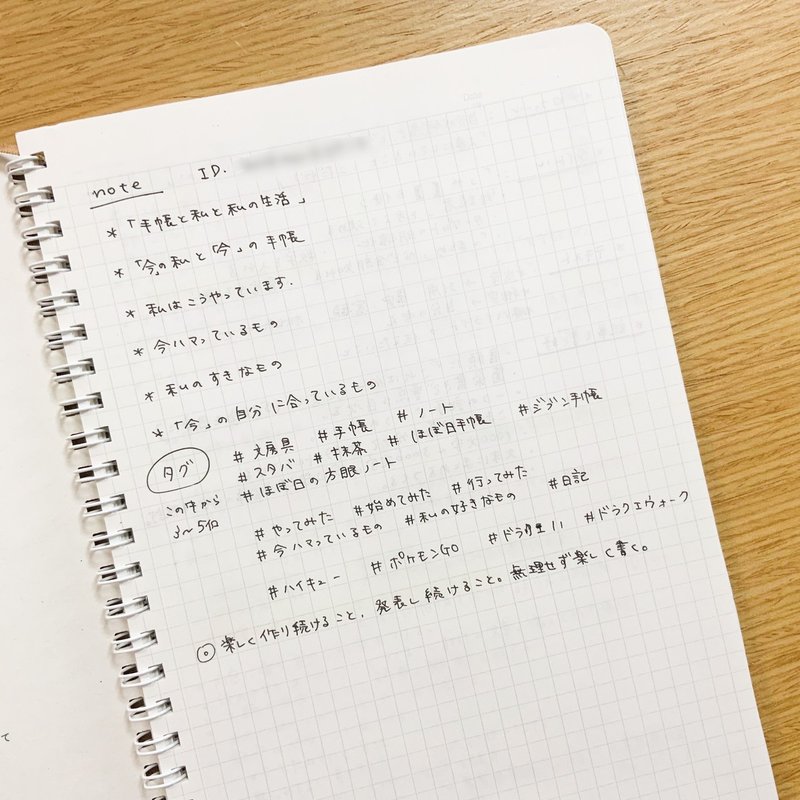 note ID.
*「手帳と私と私の生活」
*「今」の私と「今」の手帳
* 私はこうやっています.
* 今ハマっているもの
* 私のすきなもの
*「今」の自分に合っているもの
タグ #文房具 #手帳 #ノート
#スタバ #抹茶 #ほぼ日手帳 #ジブン手帳
#ほぼ日の方眼ノート
この中から
3〜5個
#やってみた #始めてみた #行ってみた #日記
#今ハマっているもの #私の好きなもの
#ハイキュー #ポケモンGO #ドラクエ11 #ドラクエウォーク
◎ 楽しく作り続けること、発表し続けること。無理せず楽しく書く。
て